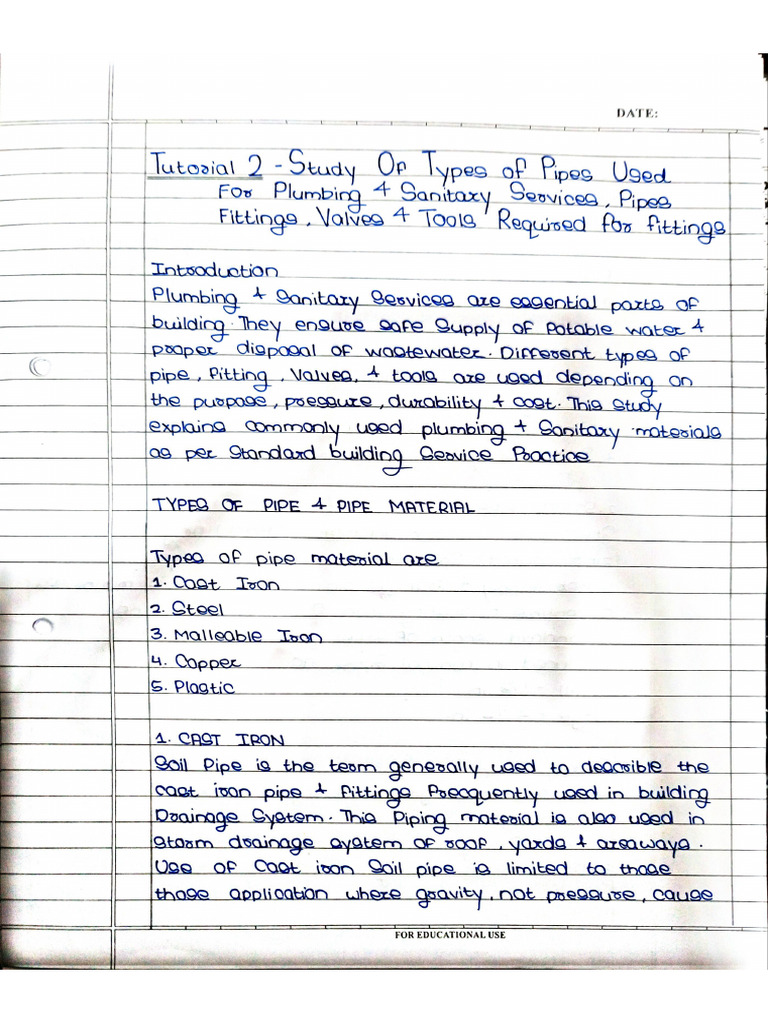 DATE:
Tutorial 2 - Study Of Types of Pipes Used
For Plumbing & Sanitary Services, Pipes
Fittings, Valves & Tools Required for fittings
Introduction
Plumbing & Sanitary Services are essential parts of
building. They ensure safe Supply of Potable water &
proper disposal of wastewater. Different types of
pipe, Fitting, Valves, & tools are used depending on
the purpose, pressure, durability & cost. This study
explains commonly used plumbing & Sanitary materials
as per Standard building Service Practice
TYPES OF PIPE & PIPE MATERIAL
Types of pipe material are
1. Cast Iron
2. Steel
3. Malleable Iron
4. Copper
5. Plastic
1. CAST IRON
Soil Pipe is the term generally used to describle the
cast iron pipe & fittings Freacquently used in building
Drainage System. This Piping material is also used in
storm drainage system of roof, yards & areaways.
Use of Cast iron Soil pipe is limited to those
those application where gravity, not pressure, cause
FOR EDUCATIONAL USE